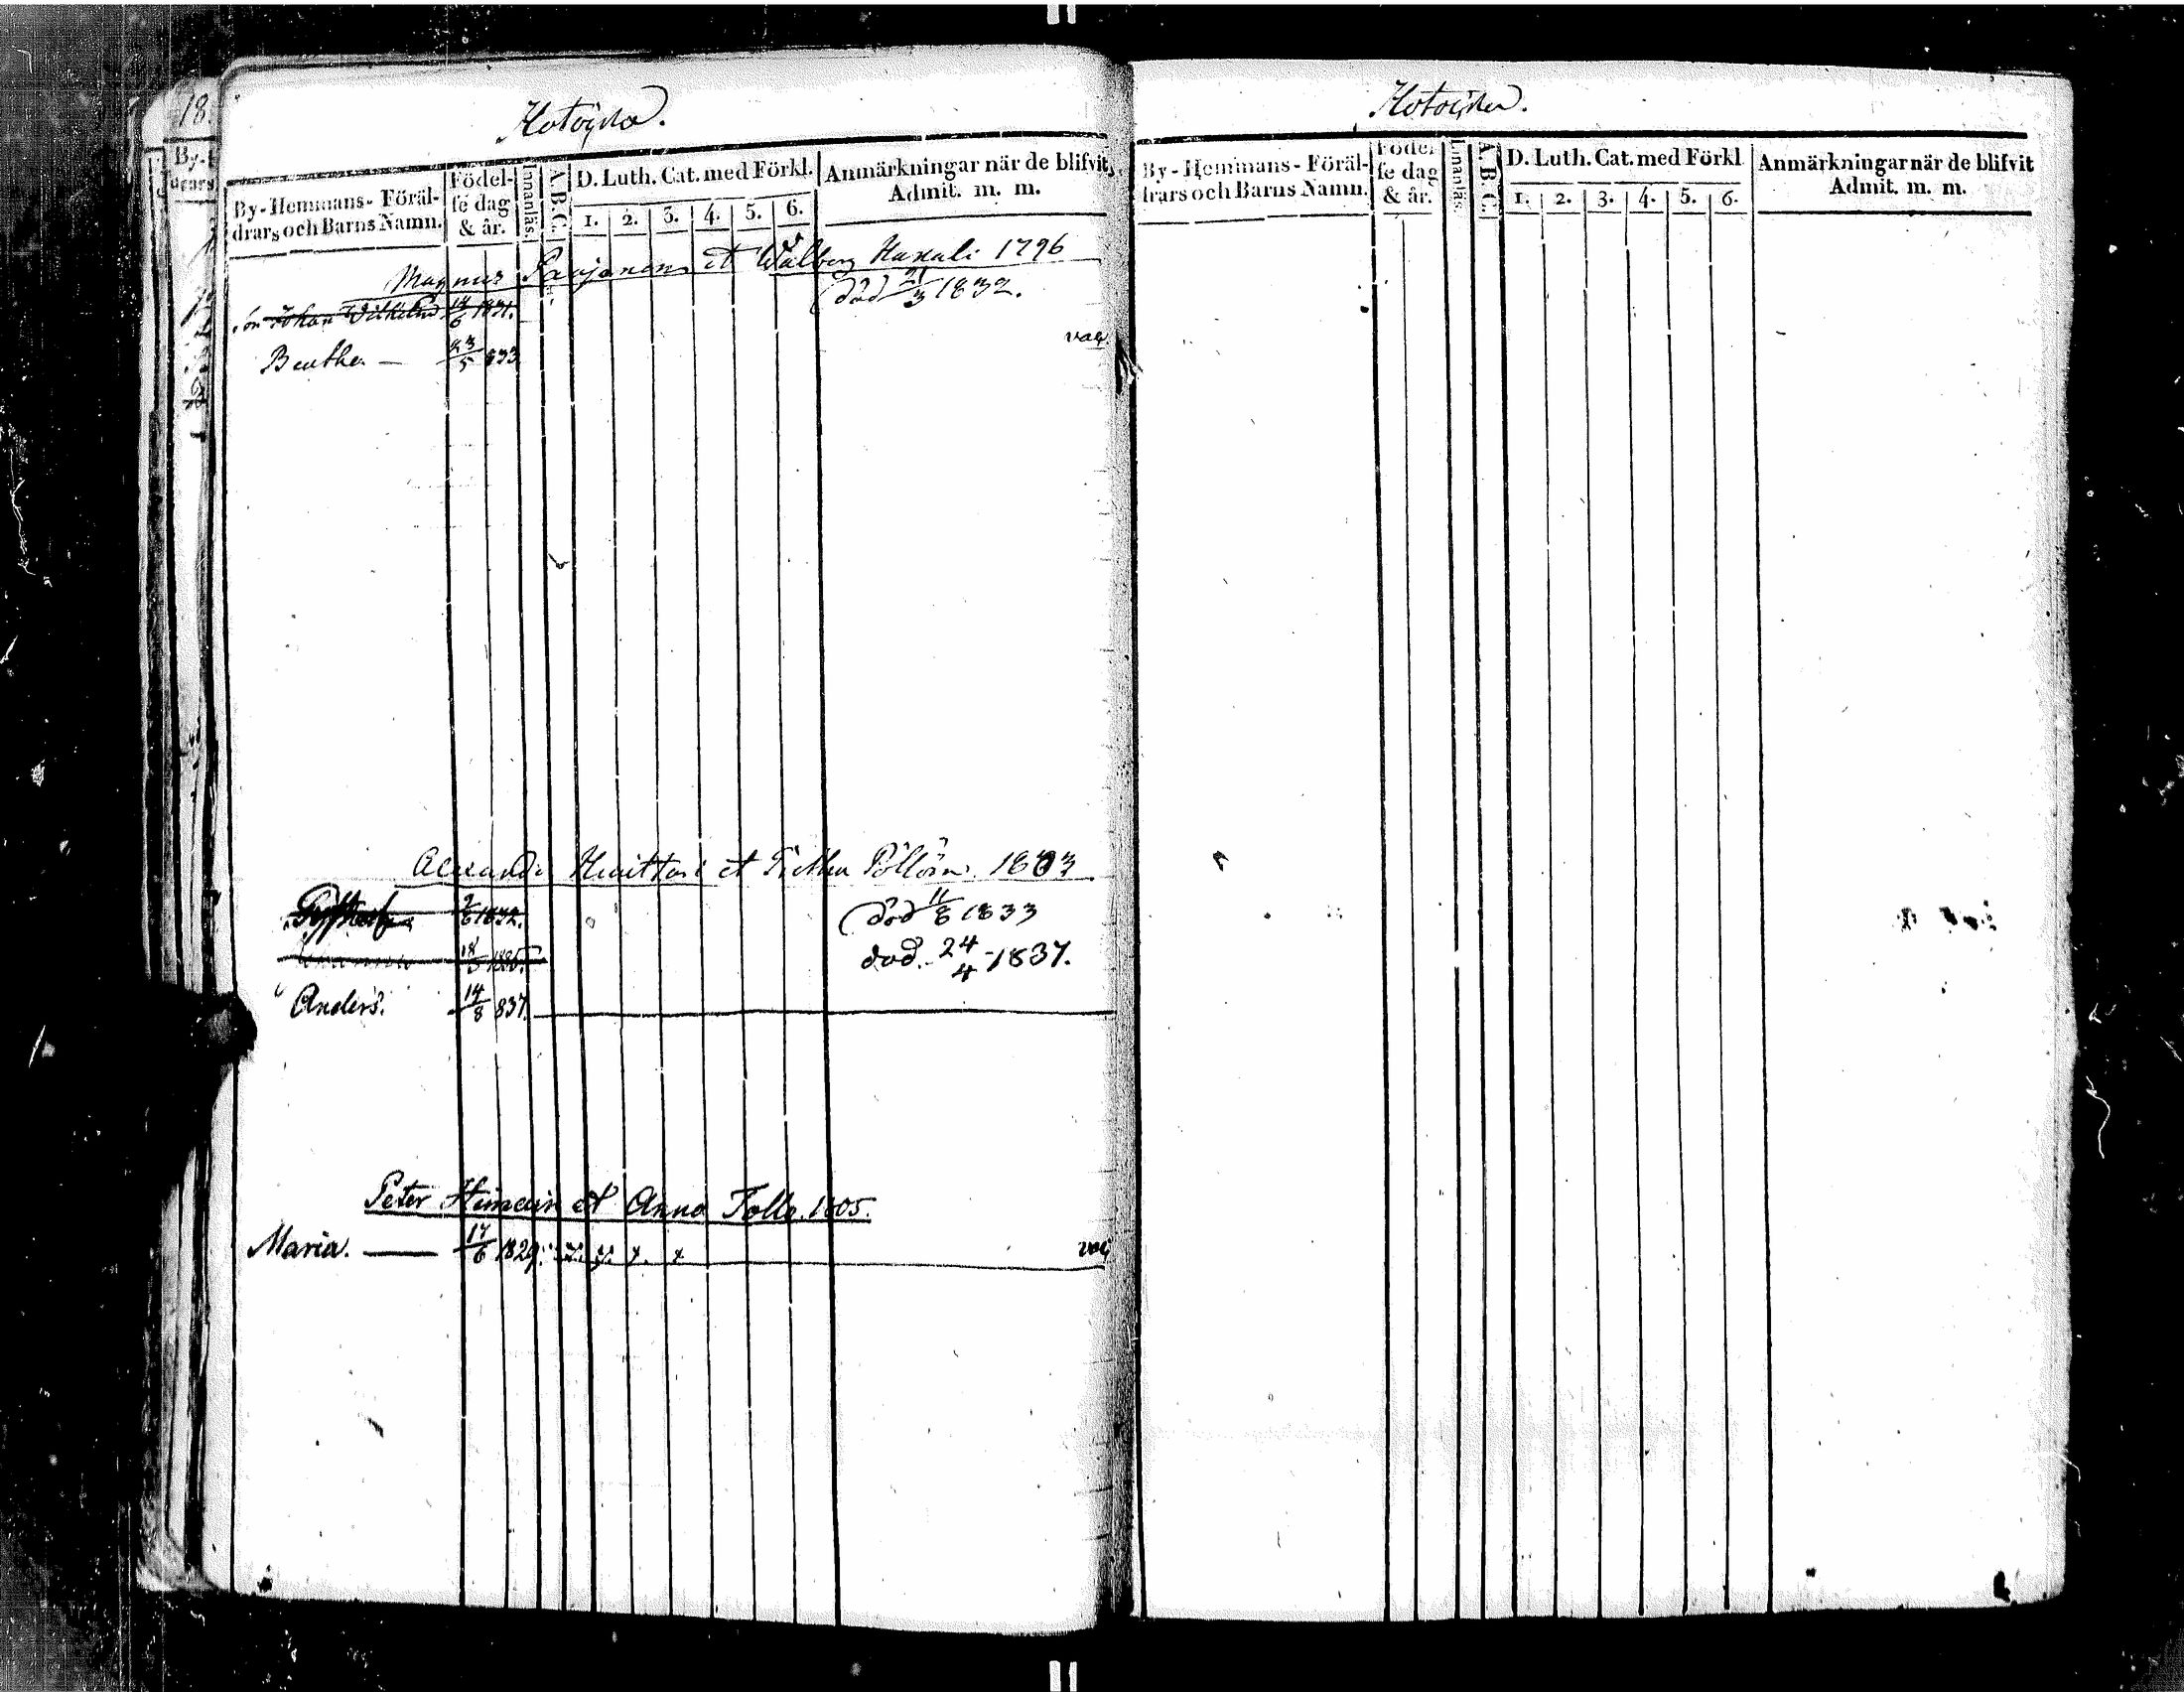 18.
By-
Hotoiska.
By-Hemmans-Föräl-
drars och Barns Namn.
Födel-
se dag
& år.
Innanläs.
A.B.C.
D. Luth. Cat. med Förkl.
1. 2. 3. 4. 5. 6.
Anmärkningar när de blifvit
Admit. m. m.
Magnus et Walborg 1796
Son Johan Wilhelm 18/6 1831. död 21/3 1832.
Beatha — 23/5 833 vac.
Alexander et 1803
Gustaf 2/6 1832. död 11/8 1833
18/3 död. 24/4 1837.
Anders. 14/8 837.
Peter et Anna Tolla. 1805.
Maria. — 17/6 1829. x x x x vac
Hotoiska.
By-Hemmans-Föräl-
drars och Barns Namn.
Födel
se dag
& år.
Innanläs.
A.B.C.
D. Luth. Cat. med Förkl
1. 2. 3. 4. 5. 6.
Anmärkningar när de blifvit
Admit. m. m.